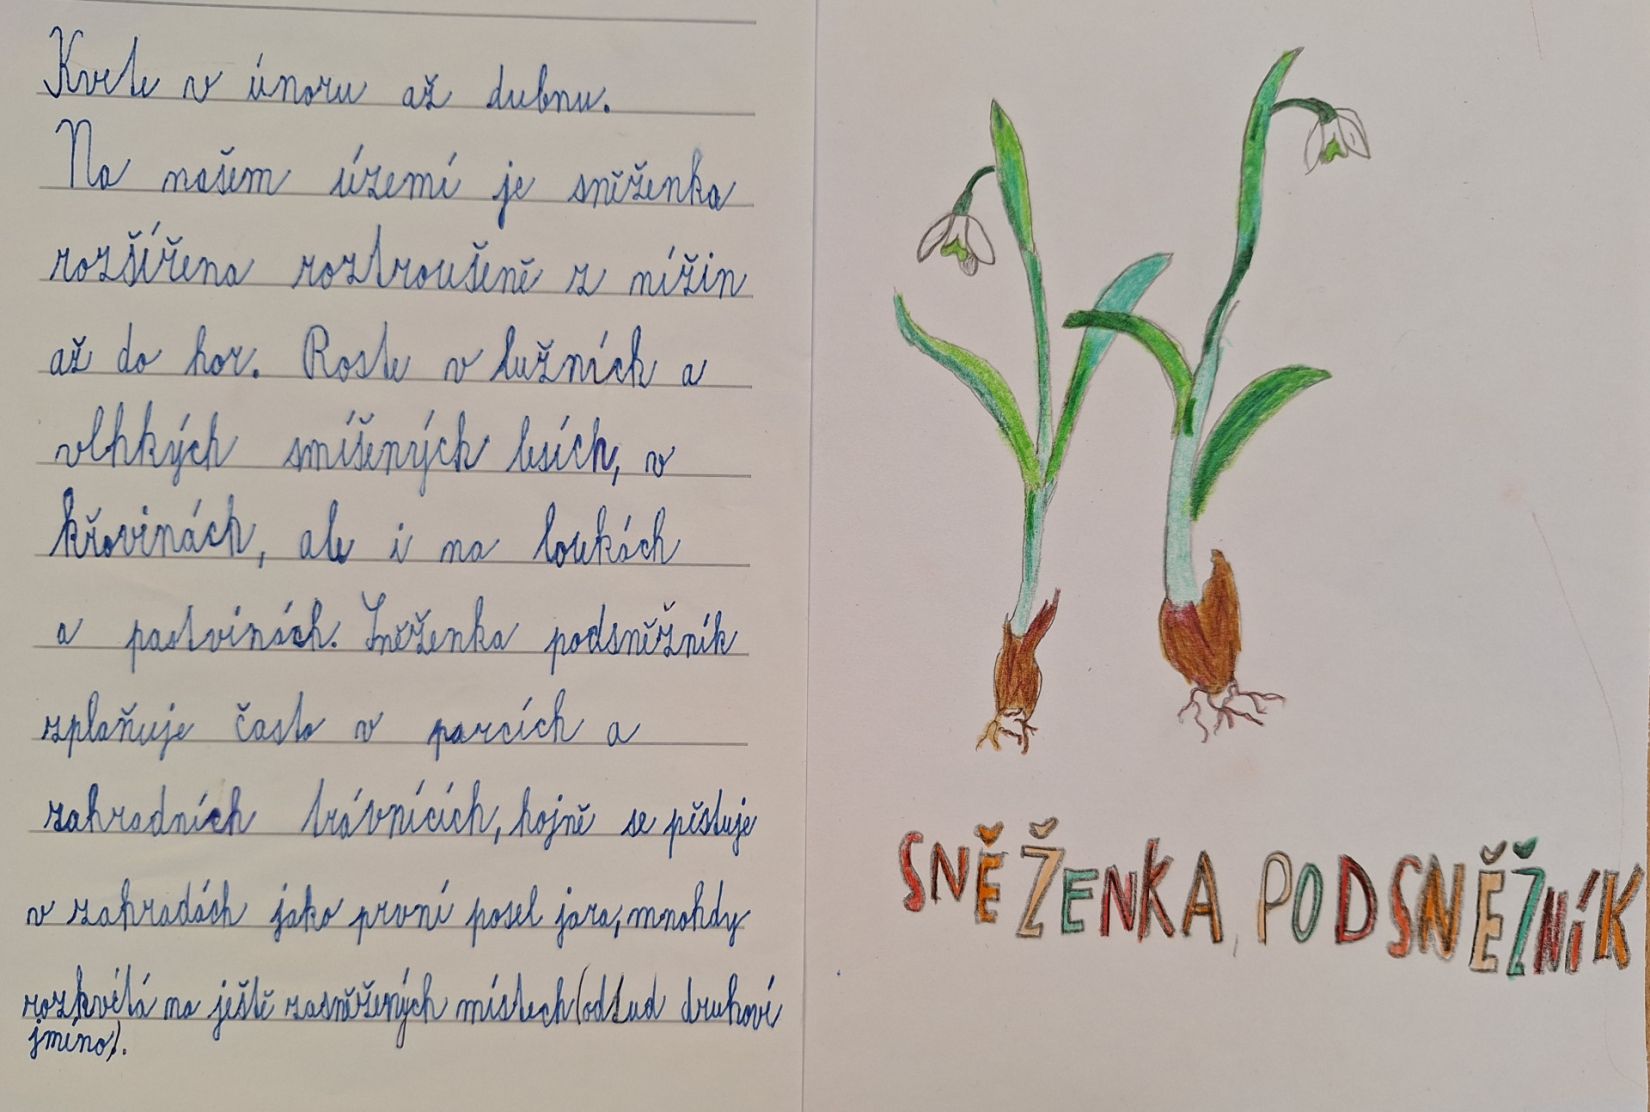 Kvete v únoru až dubnu.
Na našem území je sněženka
rozšířena roztroušeně z nížin
až do hor. Roste v lužních a
vlhkých smíšených lesích, v
křovinách, ale i na loukách
a pastvinách. Sněženka podsněžník
zplaňuje často v parcích a
zahradních trávnících, hojně se pěstuje
v zahradách jako první posel jara, mnohdy
rozkvétá na ještě zasněžených místech (odtud druhoví
jméno).
SNĚŽENKA PODSNĚŽNÍK